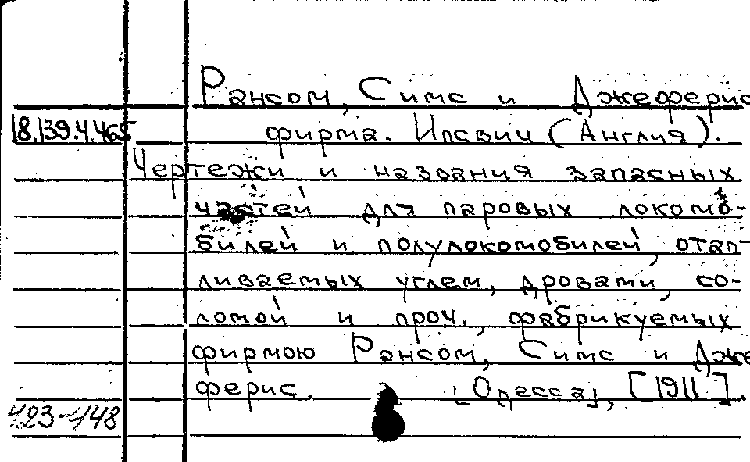 Рансом, Симс и Джеферис
18.139.4.465 фирма. Ипсвич (Англия).
Чертежи и названия запасных
частей для паровых локомо-
билей и полулокомобилей, отап-
ливаемых углем, дровами, со-
ломой и проч., фабрикуемых
фирмою Рансом, Симс и Дже
ферис. [Одесса], [1911].
423-148